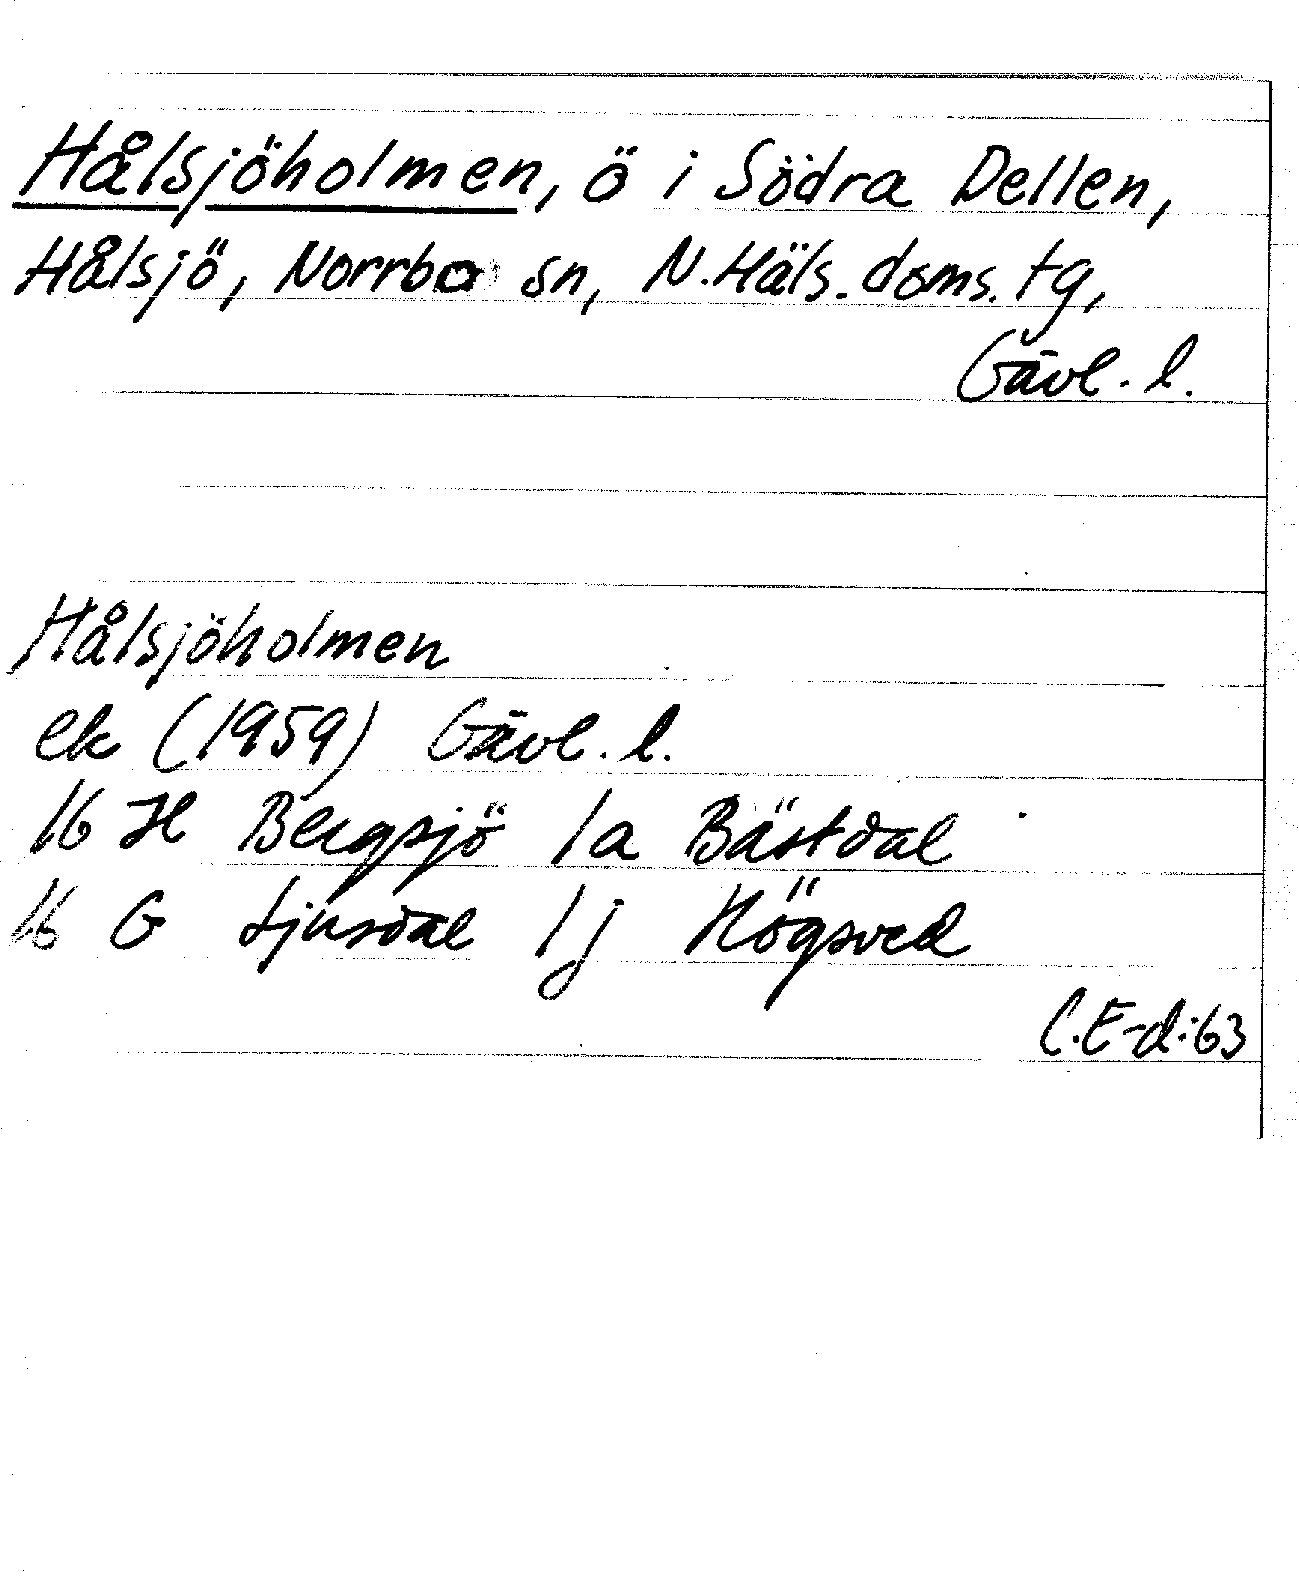 Hålsjöholmen, ö i Södra Dellen,
Hålsjö, Norrbo sn, N.Häls.doms.tg,
Gävl.l.
Hålsjöholmen
ek (1959) Gävl.l.
16 H Bergsjö 1a Bästdal
16 G Ljusdal 1j Högsved
C.E-d:63